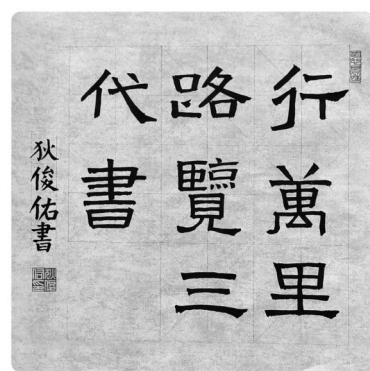 行萬里
路覽三
代書
狄俊佑書